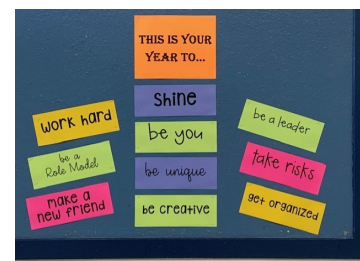 THIS IS YOUR
YEAR TO...
shine
be you
be unique
be creative
work hard
be a
Role Model
make a
new friend
be a leader
take risks
get organized